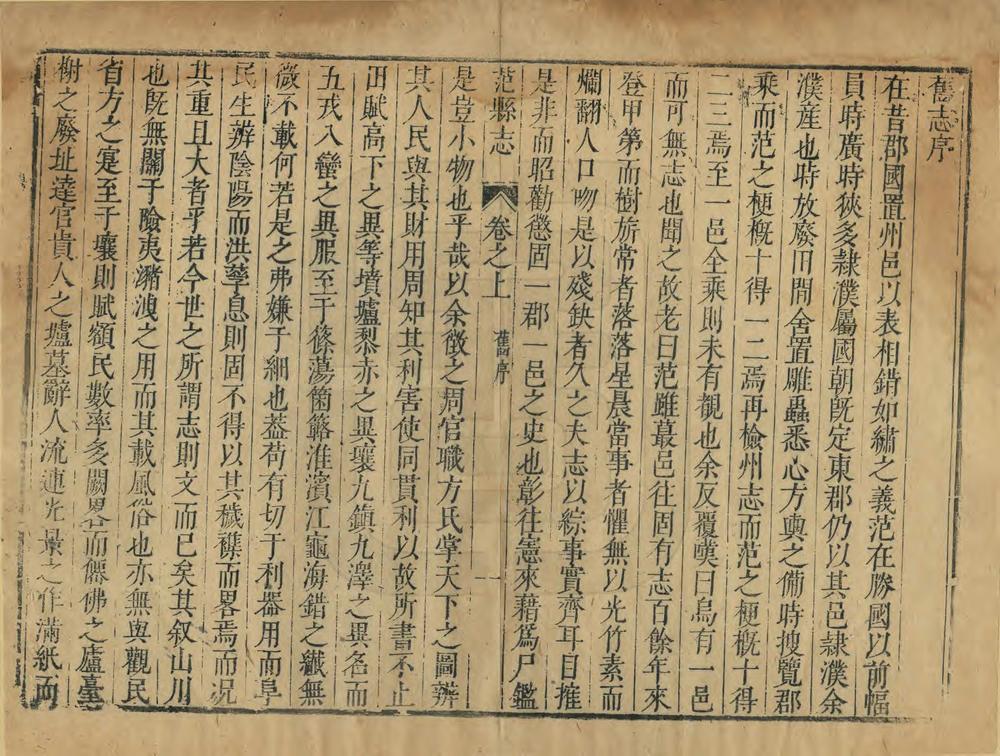 舊志序
在昔郡國置州邑以表相錯如繡之義范在勝國以前幅
員時廣時狹多隸濮屬國朝旣定東郡仍以其邑隸濮余
濮產也時放廢田間舍置雕蟲悉心方輿之備時搜覽郡
乘而范之梗槪十得一二焉再檢州志而范之梗槪十得
二三焉至一邑全乘則未有覩也余反覆嘆曰烏有一邑
而可無志也聞之故老曰范雖蕞邑往固有志百餘年來
登甲第而樹旂常者落落星晨當事者懼無以光竹素而
爛翻人口吻是以殘缺者久之夫志以綜事實齊耳目推
是非而昭勸懲固一郡一邑之史也彰往憲來藉爲尸鑑
范縣志
卷之上
舊序
一
是豈小物也乎哉以余徵之周官職方氏掌天下之圖辨
其人民與其財用周知其利害使同貫利以故所書不止
田賦高下之異等墳壚黎赤之異壤九鎭九澤之異名而
五戎八蠻之異服至于篠蕩箘簵淮濱江龜海錯之纖無
微不載何若是之弗嫌于細也葢苟有切于利器用而阜
民生辨陰陽而洪孳息則固不得以其穢襍而畧焉而况
其重且大者乎若今世之所謂志則文而已矣其叙山川
也旣無關于險夷瀦洩之用而其載風俗也亦無與觀民
省方之寔至于壤則賦額民數率多闕畧而僊佛之廬臺
榭之廢址達官貴人之壚墓辭人流連光景之作滿紙而